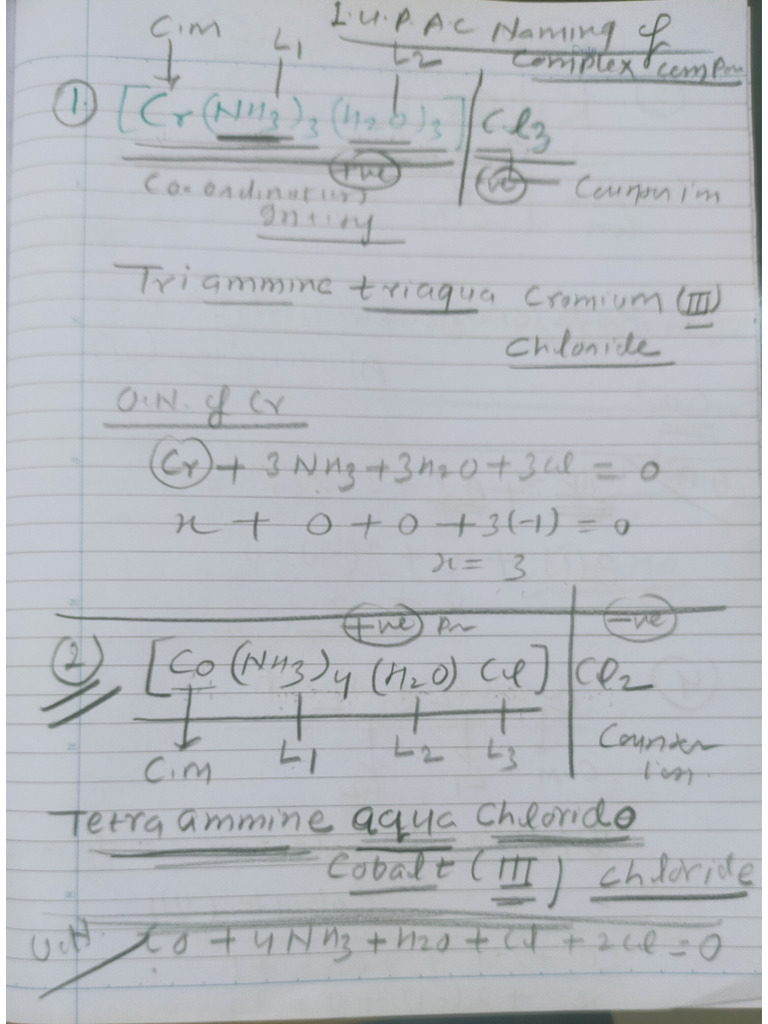 I.U.P.A.C Naming of
complex compn
C.M L1 L2
① [Cr(NH3)3(H2O)3] Cl3
+ve -ve
Co-ordination Counter im
Entity
Triammine triaqua Cromium (III)
Chloride
O.N. of Cr
Cr + 3NH3 + 3H2O + 3Cl = 0
x + 0 + 0 + 3(-1) = 0
x = 3
+ve -ve
② [Co(NH3)4(H2O) Cl] Cl2
C.M L1 L2 L3 Counter
ion
Tetra ammine aqua Chlorido
Cobalt (III) chloride
O.N. Co + 4NH3 + H2O + Cl + 2Cl = 0